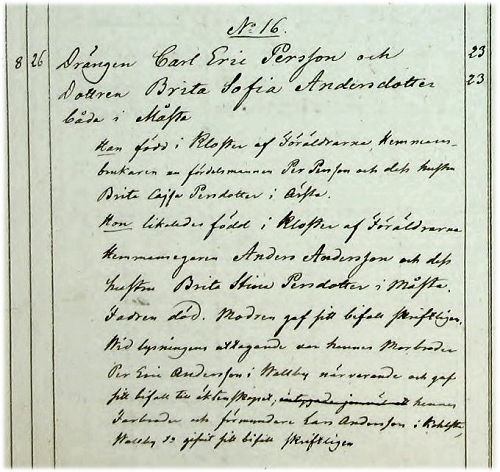 No 16.
8 26 Drängen Carl Eric Persson och 23
Dottren Brita Sofia Andersdotter 23
båda i Måsta
Han född i Kloster af Föräldrarne, Hemmans-
brukaren Per Persson och dess hustru
Brita Cajsa Persdotter i Årsta.
Hon likaledes född i Kloster af Föräldrarne
Hemmansegaren Anders Andersson och dess
hustru Brita Stina Persdotter i Måsta.
Fadren död. Modren gaf sitt bifall skriftligen.
Wid lysningens uttagande var hennes Morbroder
Per Eric Andersson i Wallby närvarande och gaf
sitt bifall till äktenskapet, hennes
Farbroder och förmyndare Lars Andersson i
Wallby gifvit sitt bifall skriftligen